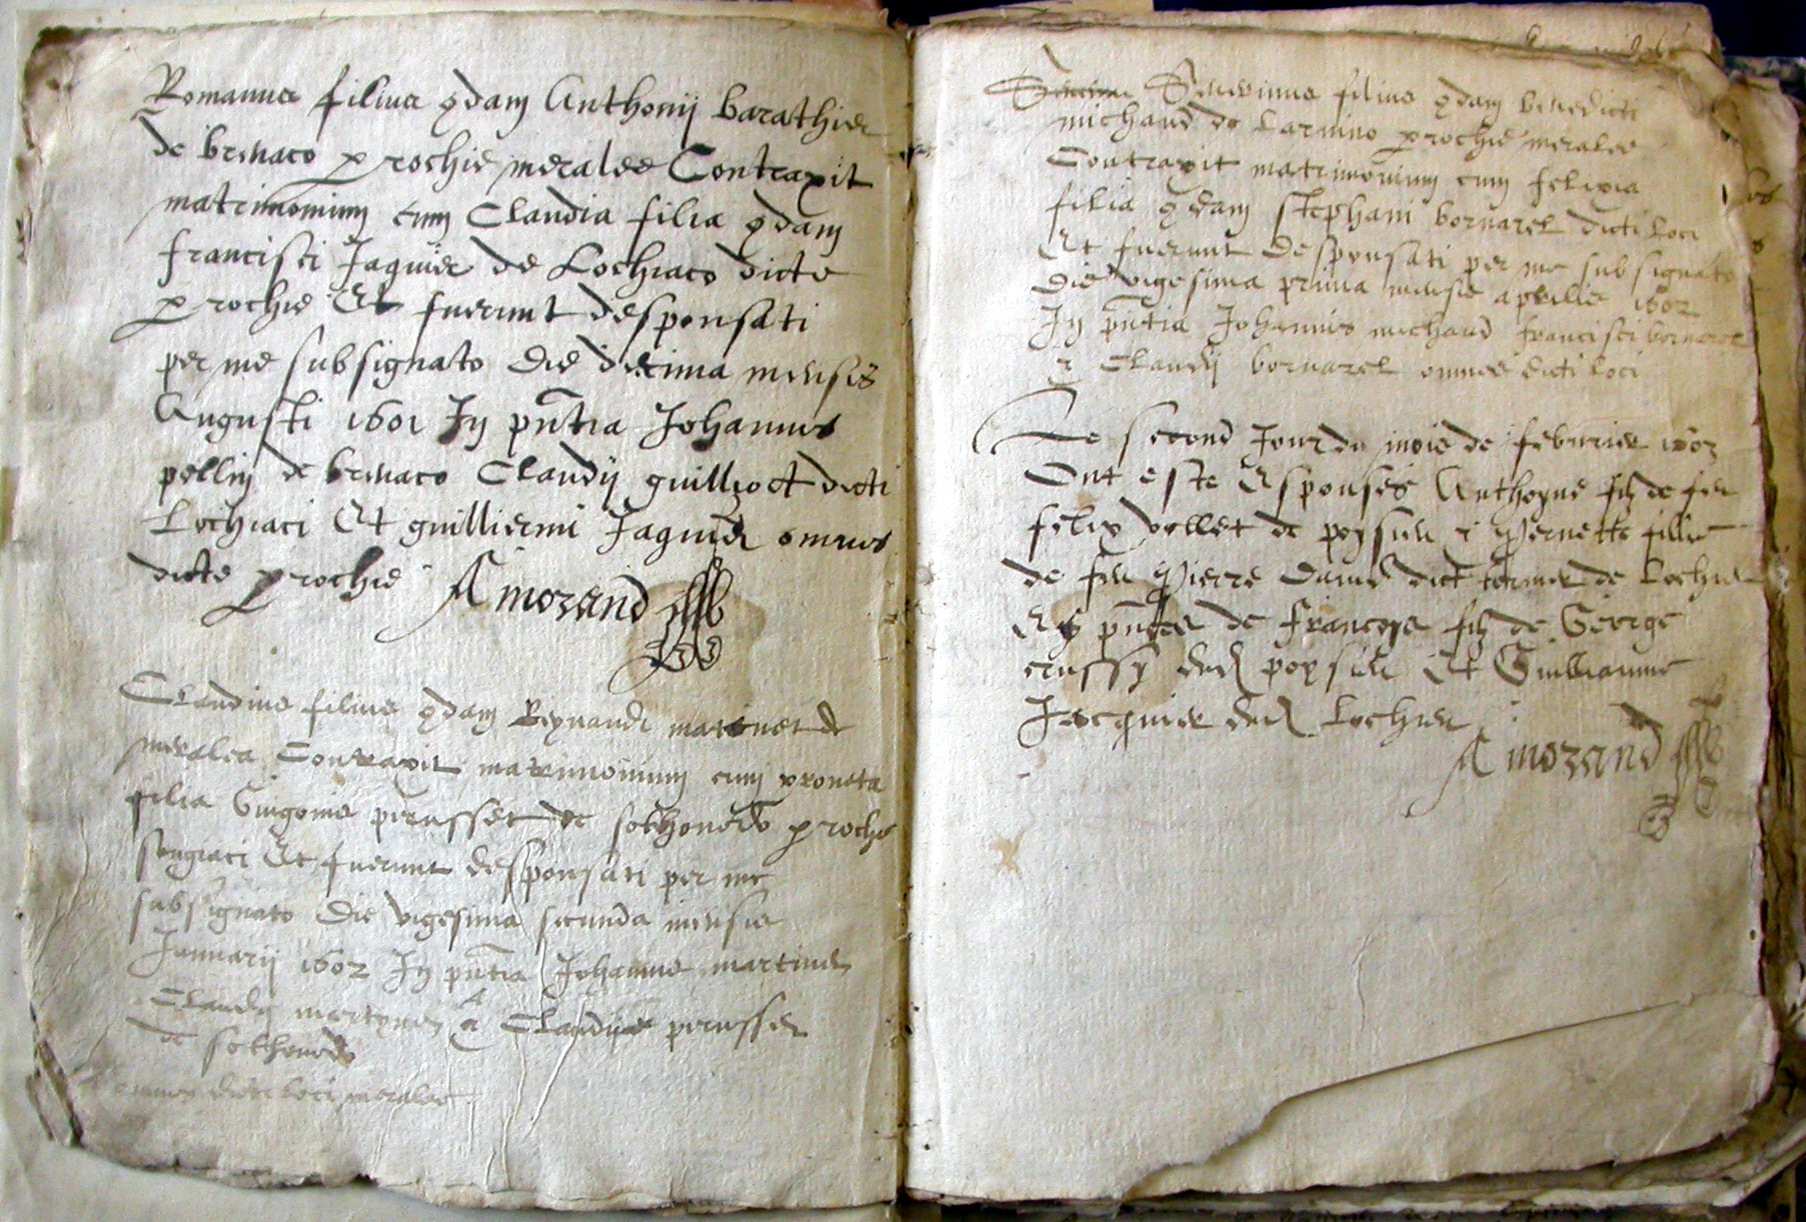 Romanus filius qdam Anthonij barathier
de brenaco prochie meralee Contraxit
matrimonium cum Claudia filia qdam
francisci Jaquier de Lochiaco dicte
prochie Et fuerunt desponsati
per me subsignato die decima mensis
Augusti 1601 In pntia Johannis
pellin de brenaco Claudij guilliot dicti
Lochiaci Et guilliermi Jaquier omnes
dicte prochie
A morand
Claudius filius qdam Reynaudi de
meralea Contraxit matrimonium cum
filia Guigonis perusset de sothonodo prochie
songiaci Et fuerunt desponsati per me
subsignato die vigesima secunda mensis
Januarij 1602 In pntia Johannis martinet
Claudij & Claudij perusset
de sothonodo
omnes dicti loci meralee
filius qdam benedicti
michaud de prochie meralee
Contraxit matrimonium cum felixia
filia qdam stephani bornarel dicti loci
Et fuerunt desponsati per me subsignato
die vigesima prima mensis aprilis 1602
In pntia Johannis michaud francisci bornarel
& Claudij bornarel omnes dicti loci
Le second Jour du mois de febvrier 1603
Ont este Esponses Anthoyne filz de feu
felix vollet de poysieu & Pernette fillie
de feu Pierre dict de Lochieu
En pntes de francoys filz de George
crussy dud poysieu Et Guilliaume
Jacquier dud Lochieu
A morand